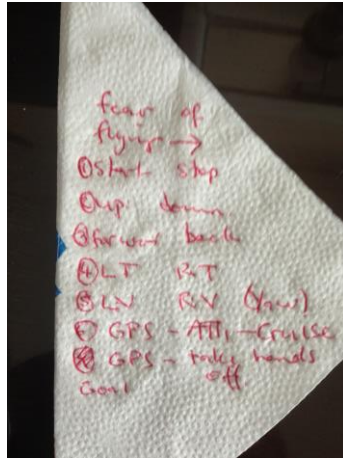 fear of
flying →
① Start stop
② up down
③ forward back
④ LT RT
⑤ LN RN (Yaw)
GPS - Atti - Cruise
GPS - take hands
off
Goal